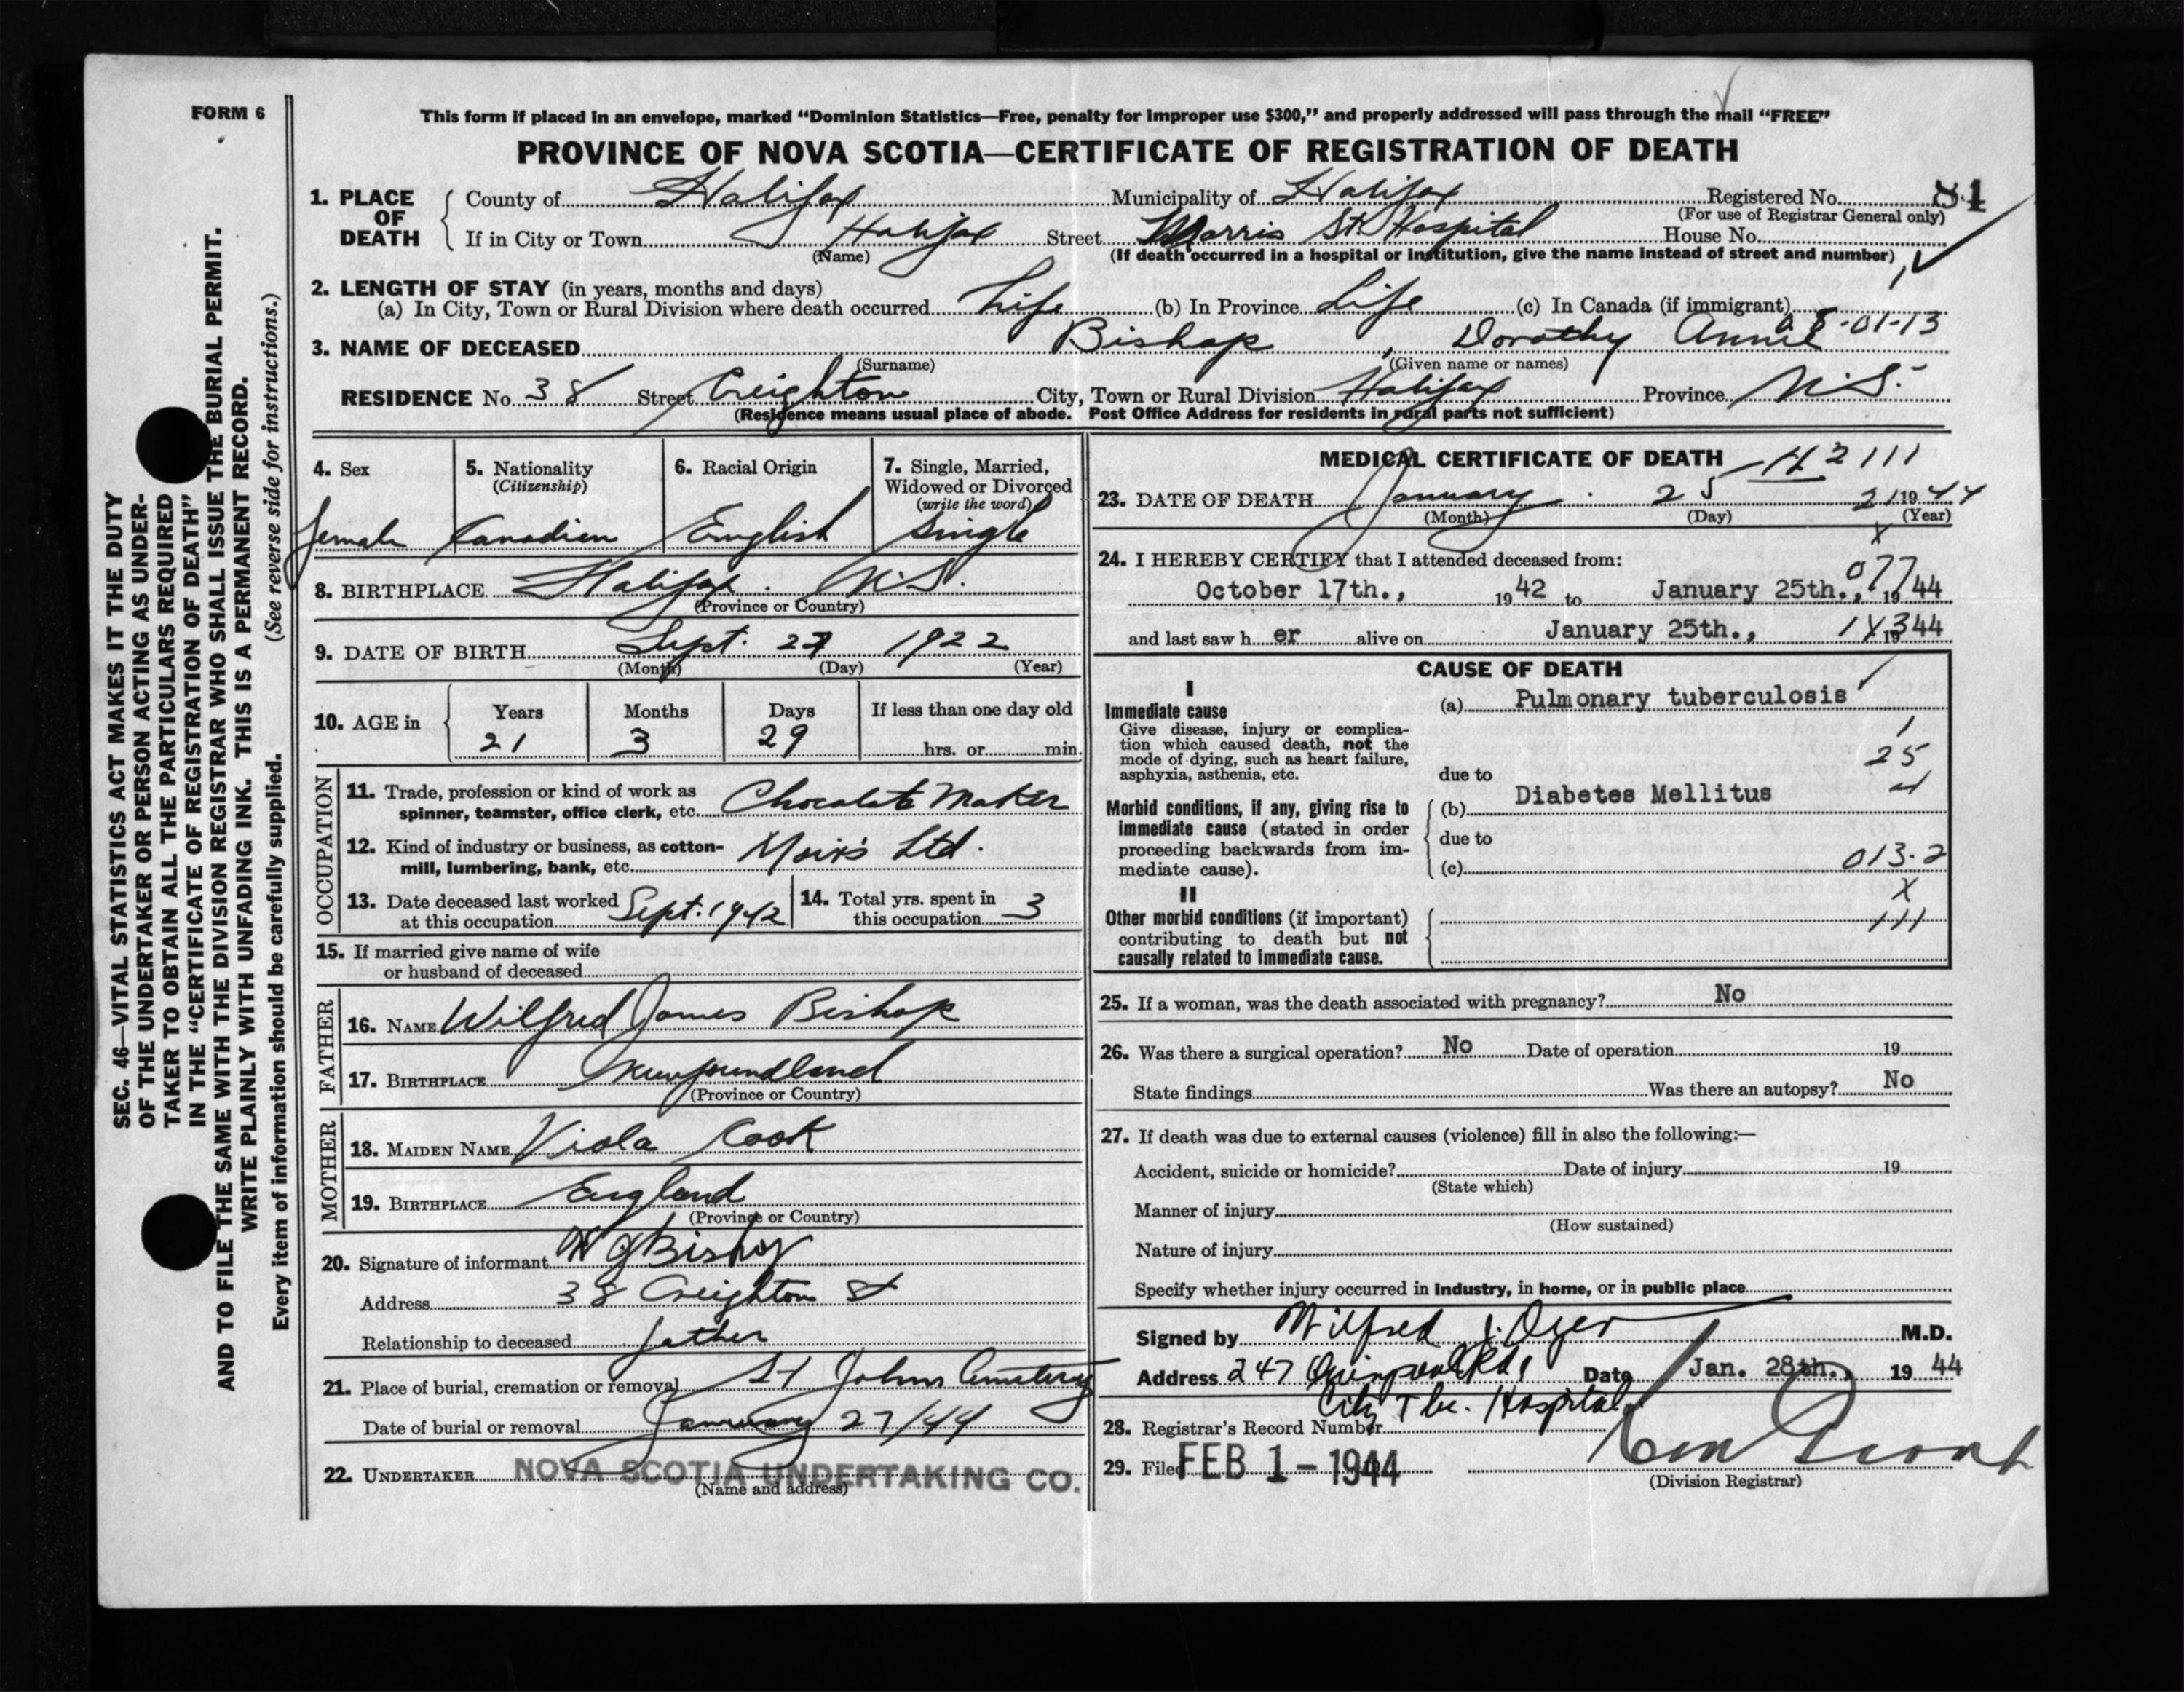 FORM 6
This form if placed in an envelope, marked “Dominion Statistics—Free, penalty for improper use $300,” and properly addressed will pass through the mail “FREE”
PROVINCE OF NOVA SCOTIA—CERTIFICATE OF REGISTRATION OF DEATH
1. PLACE OF DEATH { County of Halifax Municipality of Halifax Registered No. 81
(For use of Registrar General only)
If in City or Town Halifax Street Morris St. Hospital House No.
(Name) (If death occurred in a hospital or institution, give the name instead of street and number)
2. LENGTH OF STAY (in years, months and days)
(a) In City, Town or Rural Division where death occurred Life (b) In Province Life (c) In Canada (if immigrant)
01-13
3. NAME OF DECEASED Bishop, Dorothy Annie
(Surname) (Given name or names)
RESIDENCE No. 38 Street Creighton City, Town or Rural Division Halifax Province N.S.
(Residence means usual place of abode. Post Office Address for residents in rural parts not sufficient)
4. Sex 5. Nationality (Citizenship) 6. Racial Origin 7. Single, Married, Widowed or Divorced (write the word)
Female Canadian English Single
8. BIRTHPLACE Halifax. N.S.
(Province or Country)
9. DATE OF BIRTH Sept. 27 1922
(Month) (Day) (Year)
10. AGE in { Years Months Days If less than one day old
21 3 29 hrs. or min.
OCCUPATION
11. Trade, profession or kind of work as spinner, teamster, office clerk, etc. Chocolate Maker
12. Kind of industry or business, as cotton-mill, lumbering, bank, etc. Moir's Ltd.
13. Date deceased last worked at this occupation Sept. 1942 14. Total yrs. spent in this occupation 3
15. If married give name of wife
or husband of deceased
FATHER
16. NAME Wilfred James Bishop
17. BIRTHPLACE Newfoundland
(Province or Country)
MOTHER
18. MAIDEN NAME Viola Cook
19. BIRTHPLACE England
(Province or Country)
20. Signature of informant W J Bishop
Address 38 Creighton St
Relationship to deceased father
21. Place of burial, cremation or removal St Johns Cemetery
Date of burial or removal January 27/44
22. UNDERTAKER NOVA SCOTIA UNDERTAKING CO.
(Name and address)
MEDICAL CERTIFICATE OF DEATH
2111
23. DATE OF DEATH January 25 21 1944
(Month) (Day) (Year)
X
24. I HEREBY CERTIFY that I attended deceased from:
077
October 17th., 1942 to January 25th., 1944
and last saw her alive on January 25th., 1944
CAUSE OF DEATH
I
Immediate cause (a) Pulmonary tuberculosis
Give disease, injury or complica-
tion which caused death, not the 1
mode of dying, such as heart failure, 25
asphyxia, asthenia, etc. due to
Morbid conditions, if any, giving rise to (b) Diabetes Mellitus
immediate cause (stated in order due to
proceeding backwards from im-
mediate cause). (c) 013.2
II X
Other morbid conditions (if important) 111
contributing to death but not
causally related to immediate cause.
25. If a woman, was the death associated with pregnancy? No
26. Was there a surgical operation? No Date of operation 19
State findings Was there an autopsy? No
27. If death was due to external causes (violence) fill in also the following:—
Accident, suicide or homicide? Date of injury 19
(State which)
Manner of injury
(How sustained)
Nature of injury
Specify whether injury occurred in industry, in home, or in public place
Signed by Wilfred J. Dyer M.D.
Address 247 Quinpool Rd. Date Jan. 28th., 1944
City Tbc. Hospital
28. Registrar's Record Number
29. Filed FEB 1 - 1944
(Division Registrar)
SEC. 46—VITAL STATISTICS ACT MAKES IT THE DUTY
OF THE UNDERTAKER OR PERSON ACTING AS UNDER-
TAKER TO OBTAIN ALL THE PARTICULARS REQUIRED
IN THE “CERTIFICATE OF REGISTRATION OF DEATH”
AND TO FILE THE SAME WITH THE DIVISION REGISTRAR WHO SHALL ISSUE THE BURIAL PERMIT.
WRITE PLAINLY WITH UNFADING INK. THIS IS A PERMANENT RECORD.
Every item of information should be carefully supplied. (See reverse side for instructions.)